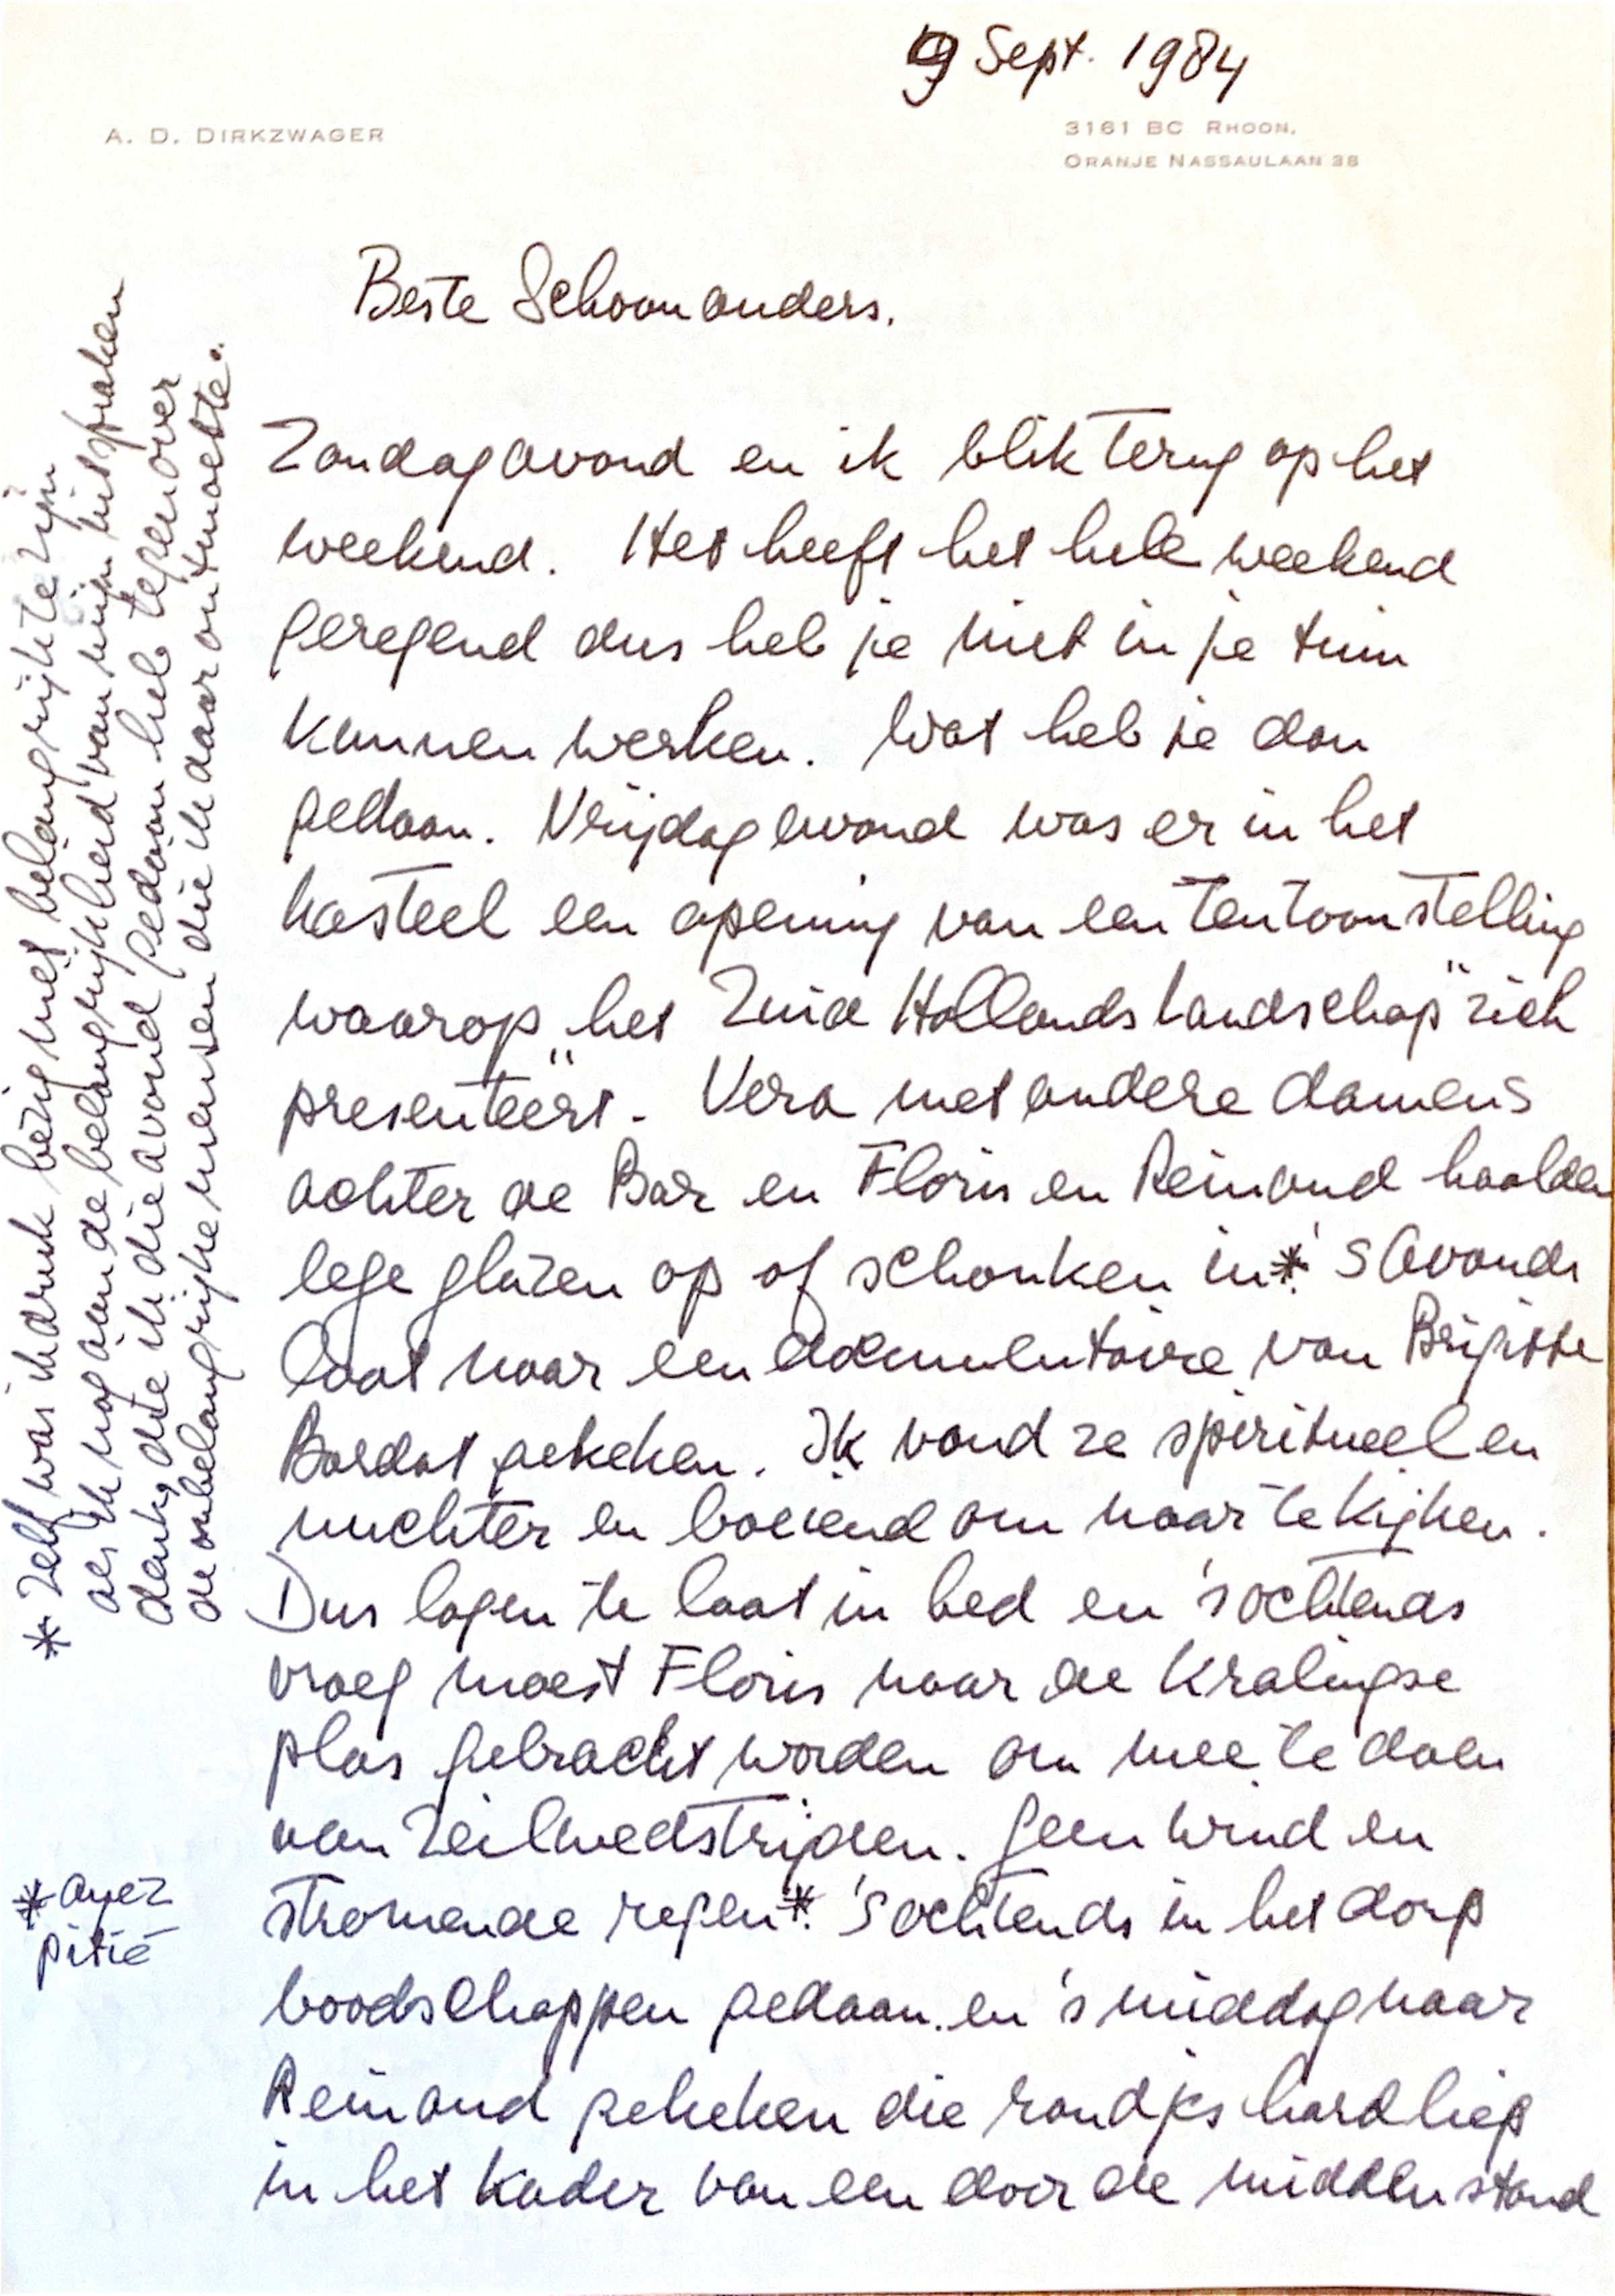 9 Sept. 1984
A. D. DIRKZWAGER
3161 BC RHOON.
ORANJE NASSAULAAN 38
Beste Schoonouders.
Zondagavond en ik blik terug op het
weekend. Het heeft het hele weekend
geregend dus heb je niet in je tuin
kunnen werken. Wat heb je dan
gedaan. Vrijdagavond was er in het
kasteel een opening van een tentoonstelling
waarop "het Zuid Hollands Landschap" zich
presenteert. Vera met andere dames
achter de Bar en Floris en Reinoud haalden
lege glazen op of schonken in*. 's Avonds
laat naar een documentaire van Brigitte
Bardot gekeken. Ik vond ze spiritueel en
nuchter en boeiend om naar te kijken.
Dus lagen te laat in bed en 's ochtends
vroeg moest Floris naar de Kralingse
plas gebracht worden om mee te doen
aan zeilwedstrijden. Geen wind en
stromende regen*. 's ochtends in het dorp
boodschappen gedaan. en 's middag naar
Reinoud gekeken die rondjes hard liep
in het kader van een door de middenstand
* Zelf was ik druk bezig met belangrijk te zijn
als ik nog aan de belangrijkheid van mijn uitspraken
denk, dte ik die avond gedaan heb tegenover
de onbelangrijke mensen die ik daar ontmoette.
* ayez
pitié